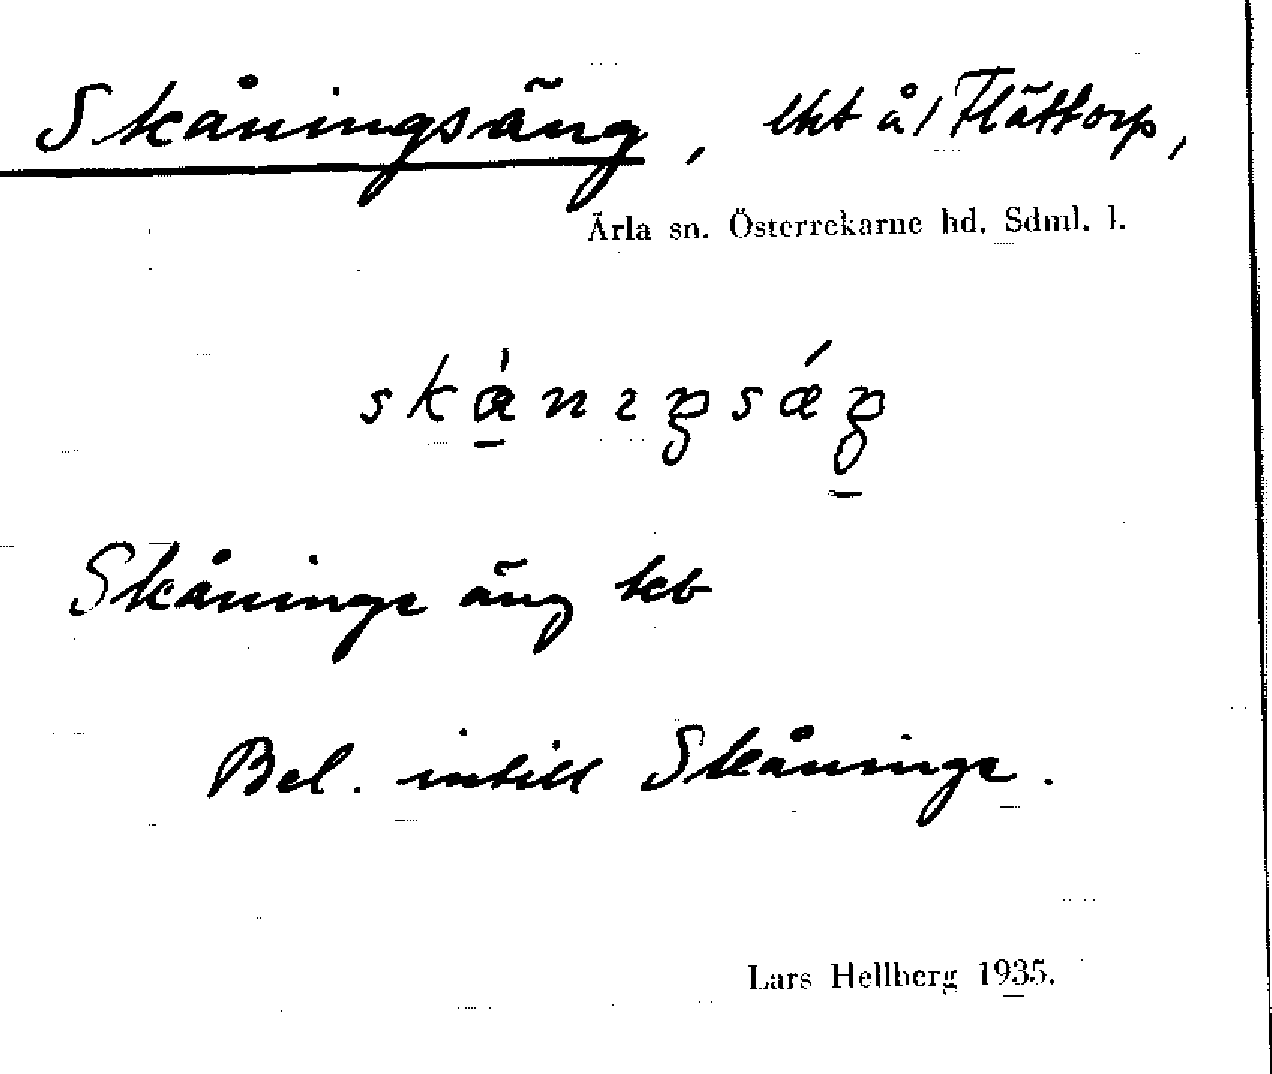 Skåningsäng, lht å/ Flättorp,
Ärla sn. Österrekarne hd. Sdml. l.
skånıŋsǽŋ
Skåninge äng kb
Bel. intill Skåninge.
Lars Hellberg 1935.